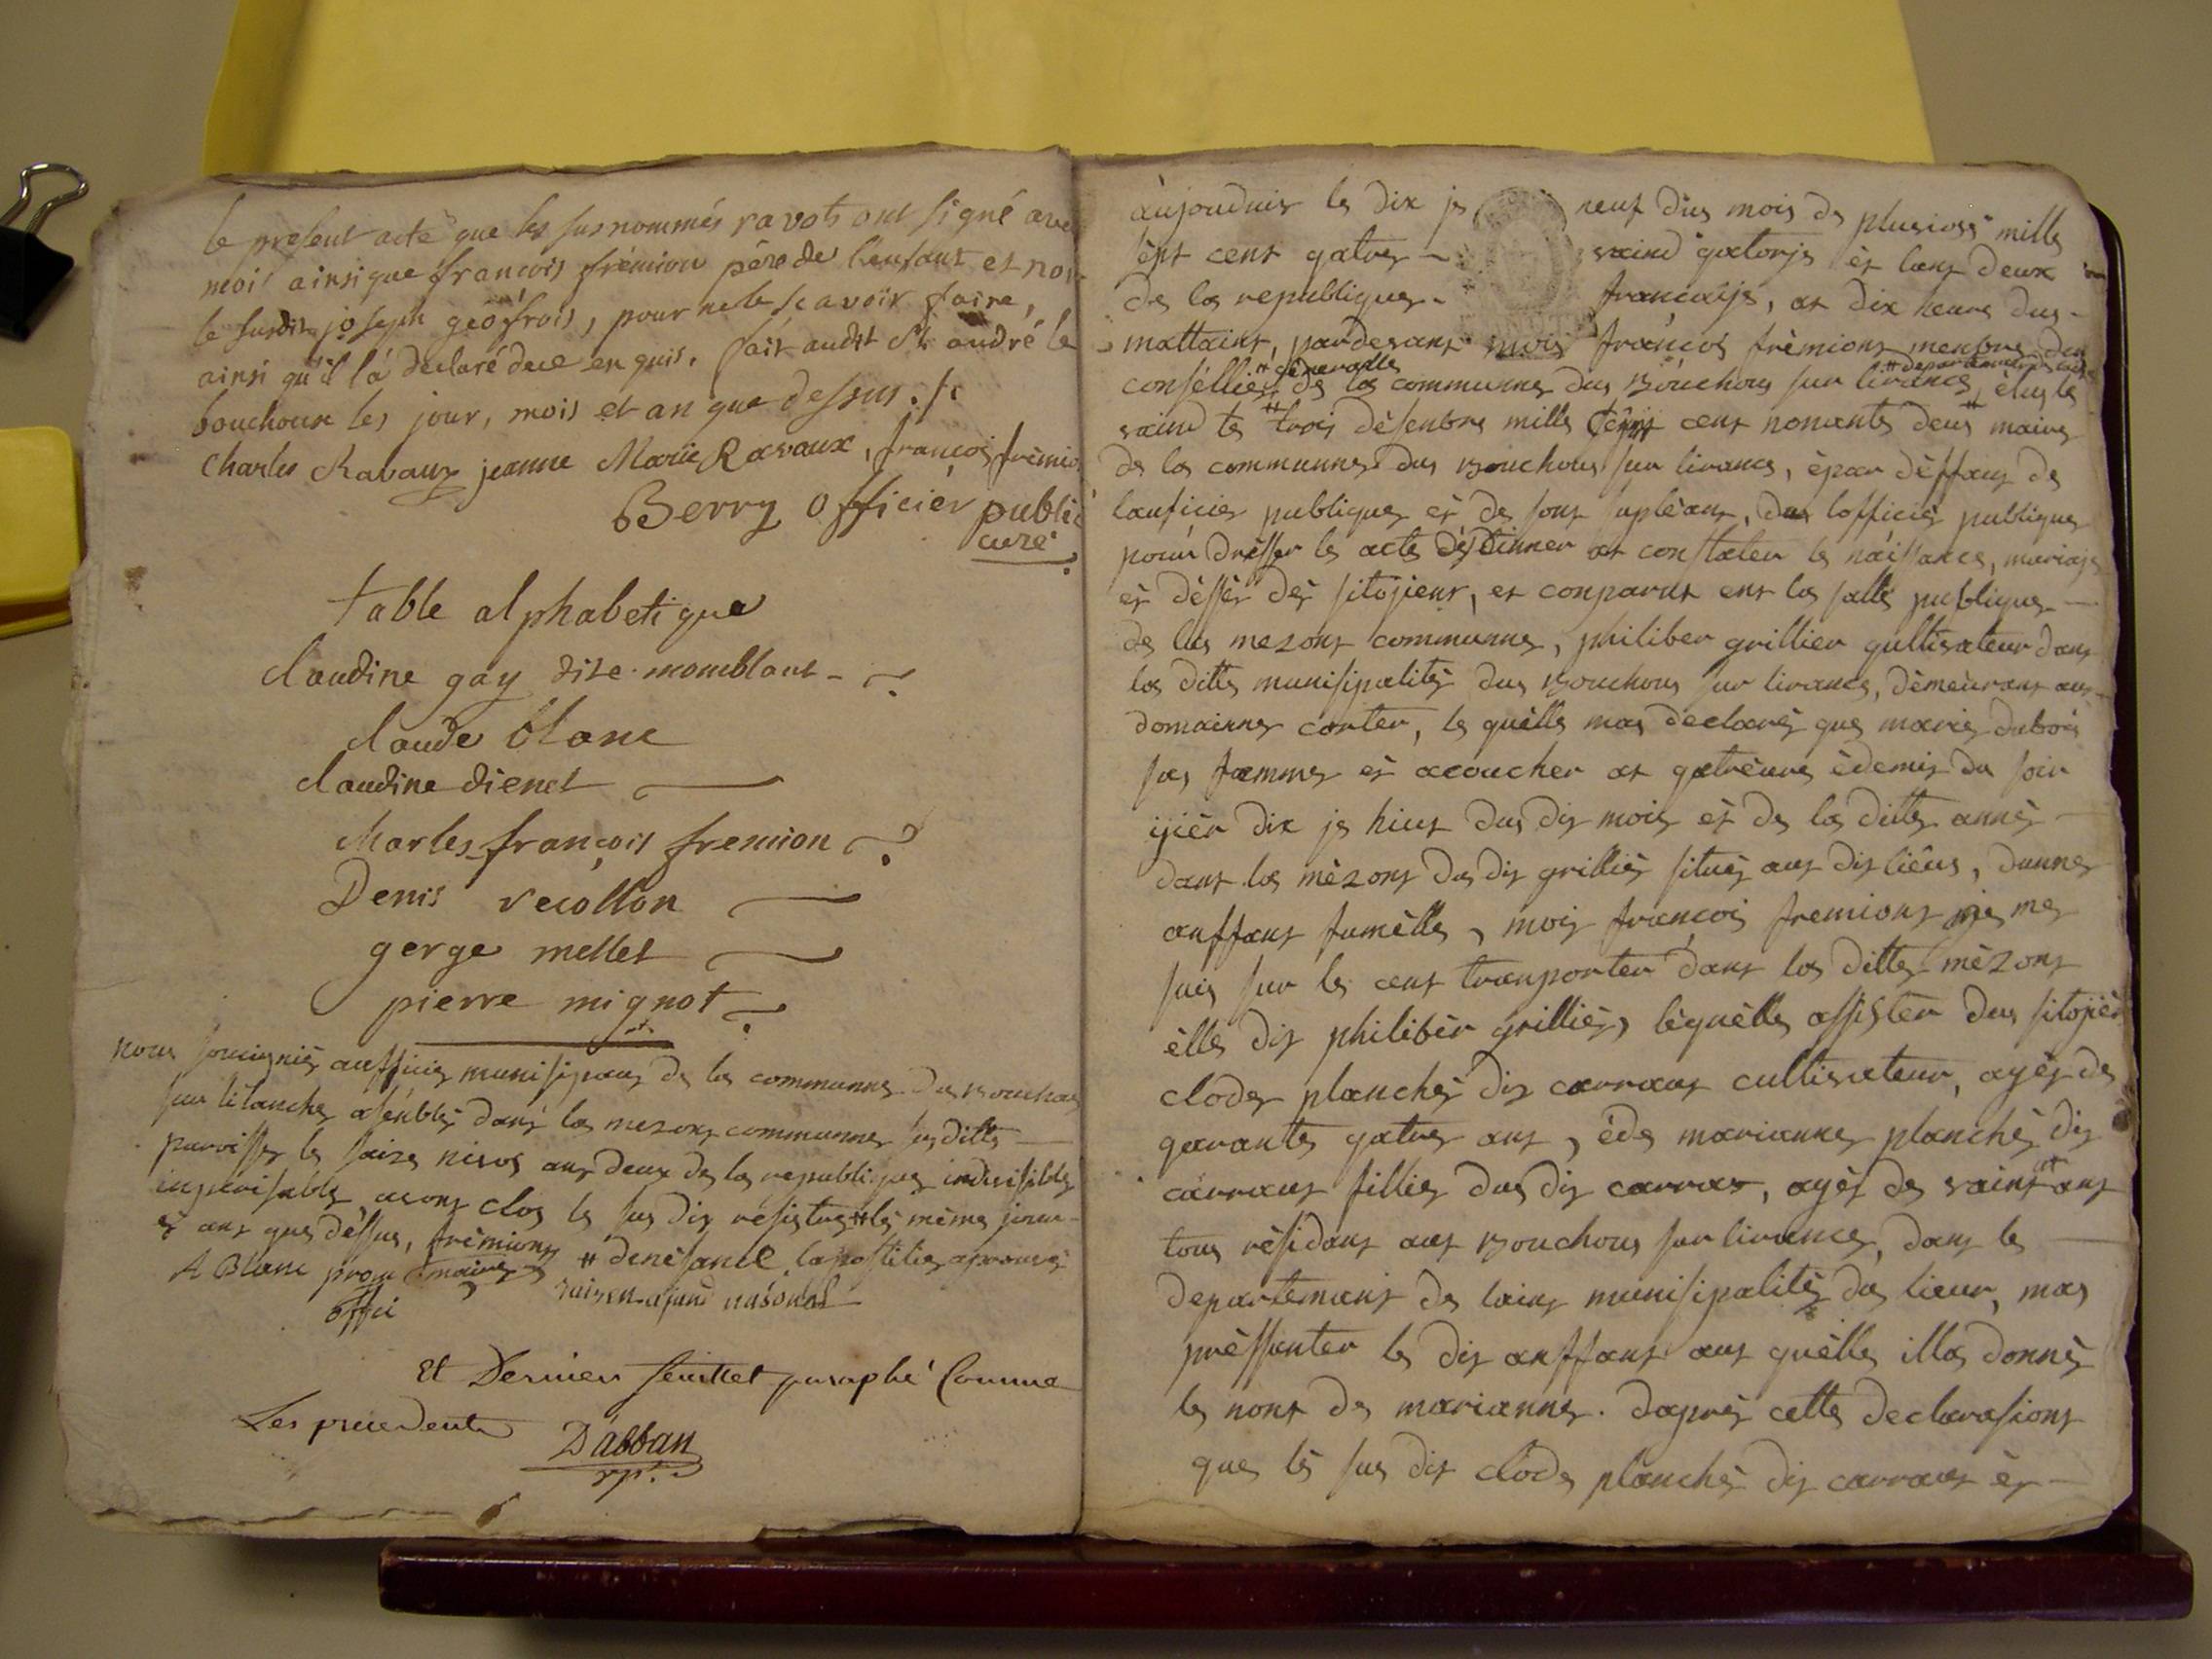 le present acte que les susnommés ravots ont signé avec
moi ainsi que francois frémion pére de l'enfant et non
le susdit joseph geofrois, pour ne le scavoir faire,
ainsi qu'il l'a declaré de ce enquis. fait audit St andré le
bouchoux les jour, mois et an que dessus.
Charles Ravaux jeanne Marie Ravaux, francois frémion
Berry officiér public
curé
table alphabetique
claudine gay dite momblant
claude blanc
claudine dienet
Charles françois fremion
Denis recollon
gerge mellet
pierre mignot
nous soucignié aufficié munisipaux de la communne du Bouchous
sur lilanche asénblé dans la mezons communne susditte
paroisse le saize nivos ans deux de la republique indivisible
inperisable, avons clos le sus dis résistre # lé même jour
é ans que déssus, frémions # denésance lapostilie aprouvé
A Blanc procu maire
offi
ajand nasional
Et Dernier feuillet paraphé Comme
Les precedents
Dabban
aujourduis le dix je neuf dus mois de plusioss mille
sèpt cent qatre vaind qatorje èt lant deux
de la republique françaije, at dix heure du
mattaint, pardevant mois françois frèmiont menbre du
conséllié # géneralle de la communne du Bouchous sur livance, élus le
vaind te trois désenbre mille sèpt cent nonante deus maire
de la communne du Bouchous sur livance, épar déffaut de
lauficier publique et de sont supléant, du lofficié publique
pour drésser le acte déstinner at constater le naissance, mariaje
ét déssés dés sitojient, et conparut ent la salle publique
de la mezont communne, philiber grillier qulltivateur dans
la ditte munisipalité du Bouchous sur livance, démeurant au
domainne carter, le quélle mas declaré que marie dubois
sas famme ét acoucher at qatreure édemis du soir
ijiér dix je hiut dus dis mois ét de la ditte anné
dant la mèzont du dis grillié situé aut dis liéus, dunne
anffant fumélle, mois francois fremiont je me
suis sur le cent tranporter dans la ditte mézont
élle dis philibér grillié, léquélle assister dus sitojiér
clode planché dis carraut culltivateur, agés de
qarante qatre ans, éde marianne planché dis
carraut fillie dus dis carrat, agés de vaint ans
tous résidant aut Bouchous sur livance, dans le
departemant de laint munisipalité du lieur, mas
préssanter le dis anffant aut quélle illa donné
le nont de marianne. daprés cette declarasiont
que lé sus dis clode planché dis carraut ét